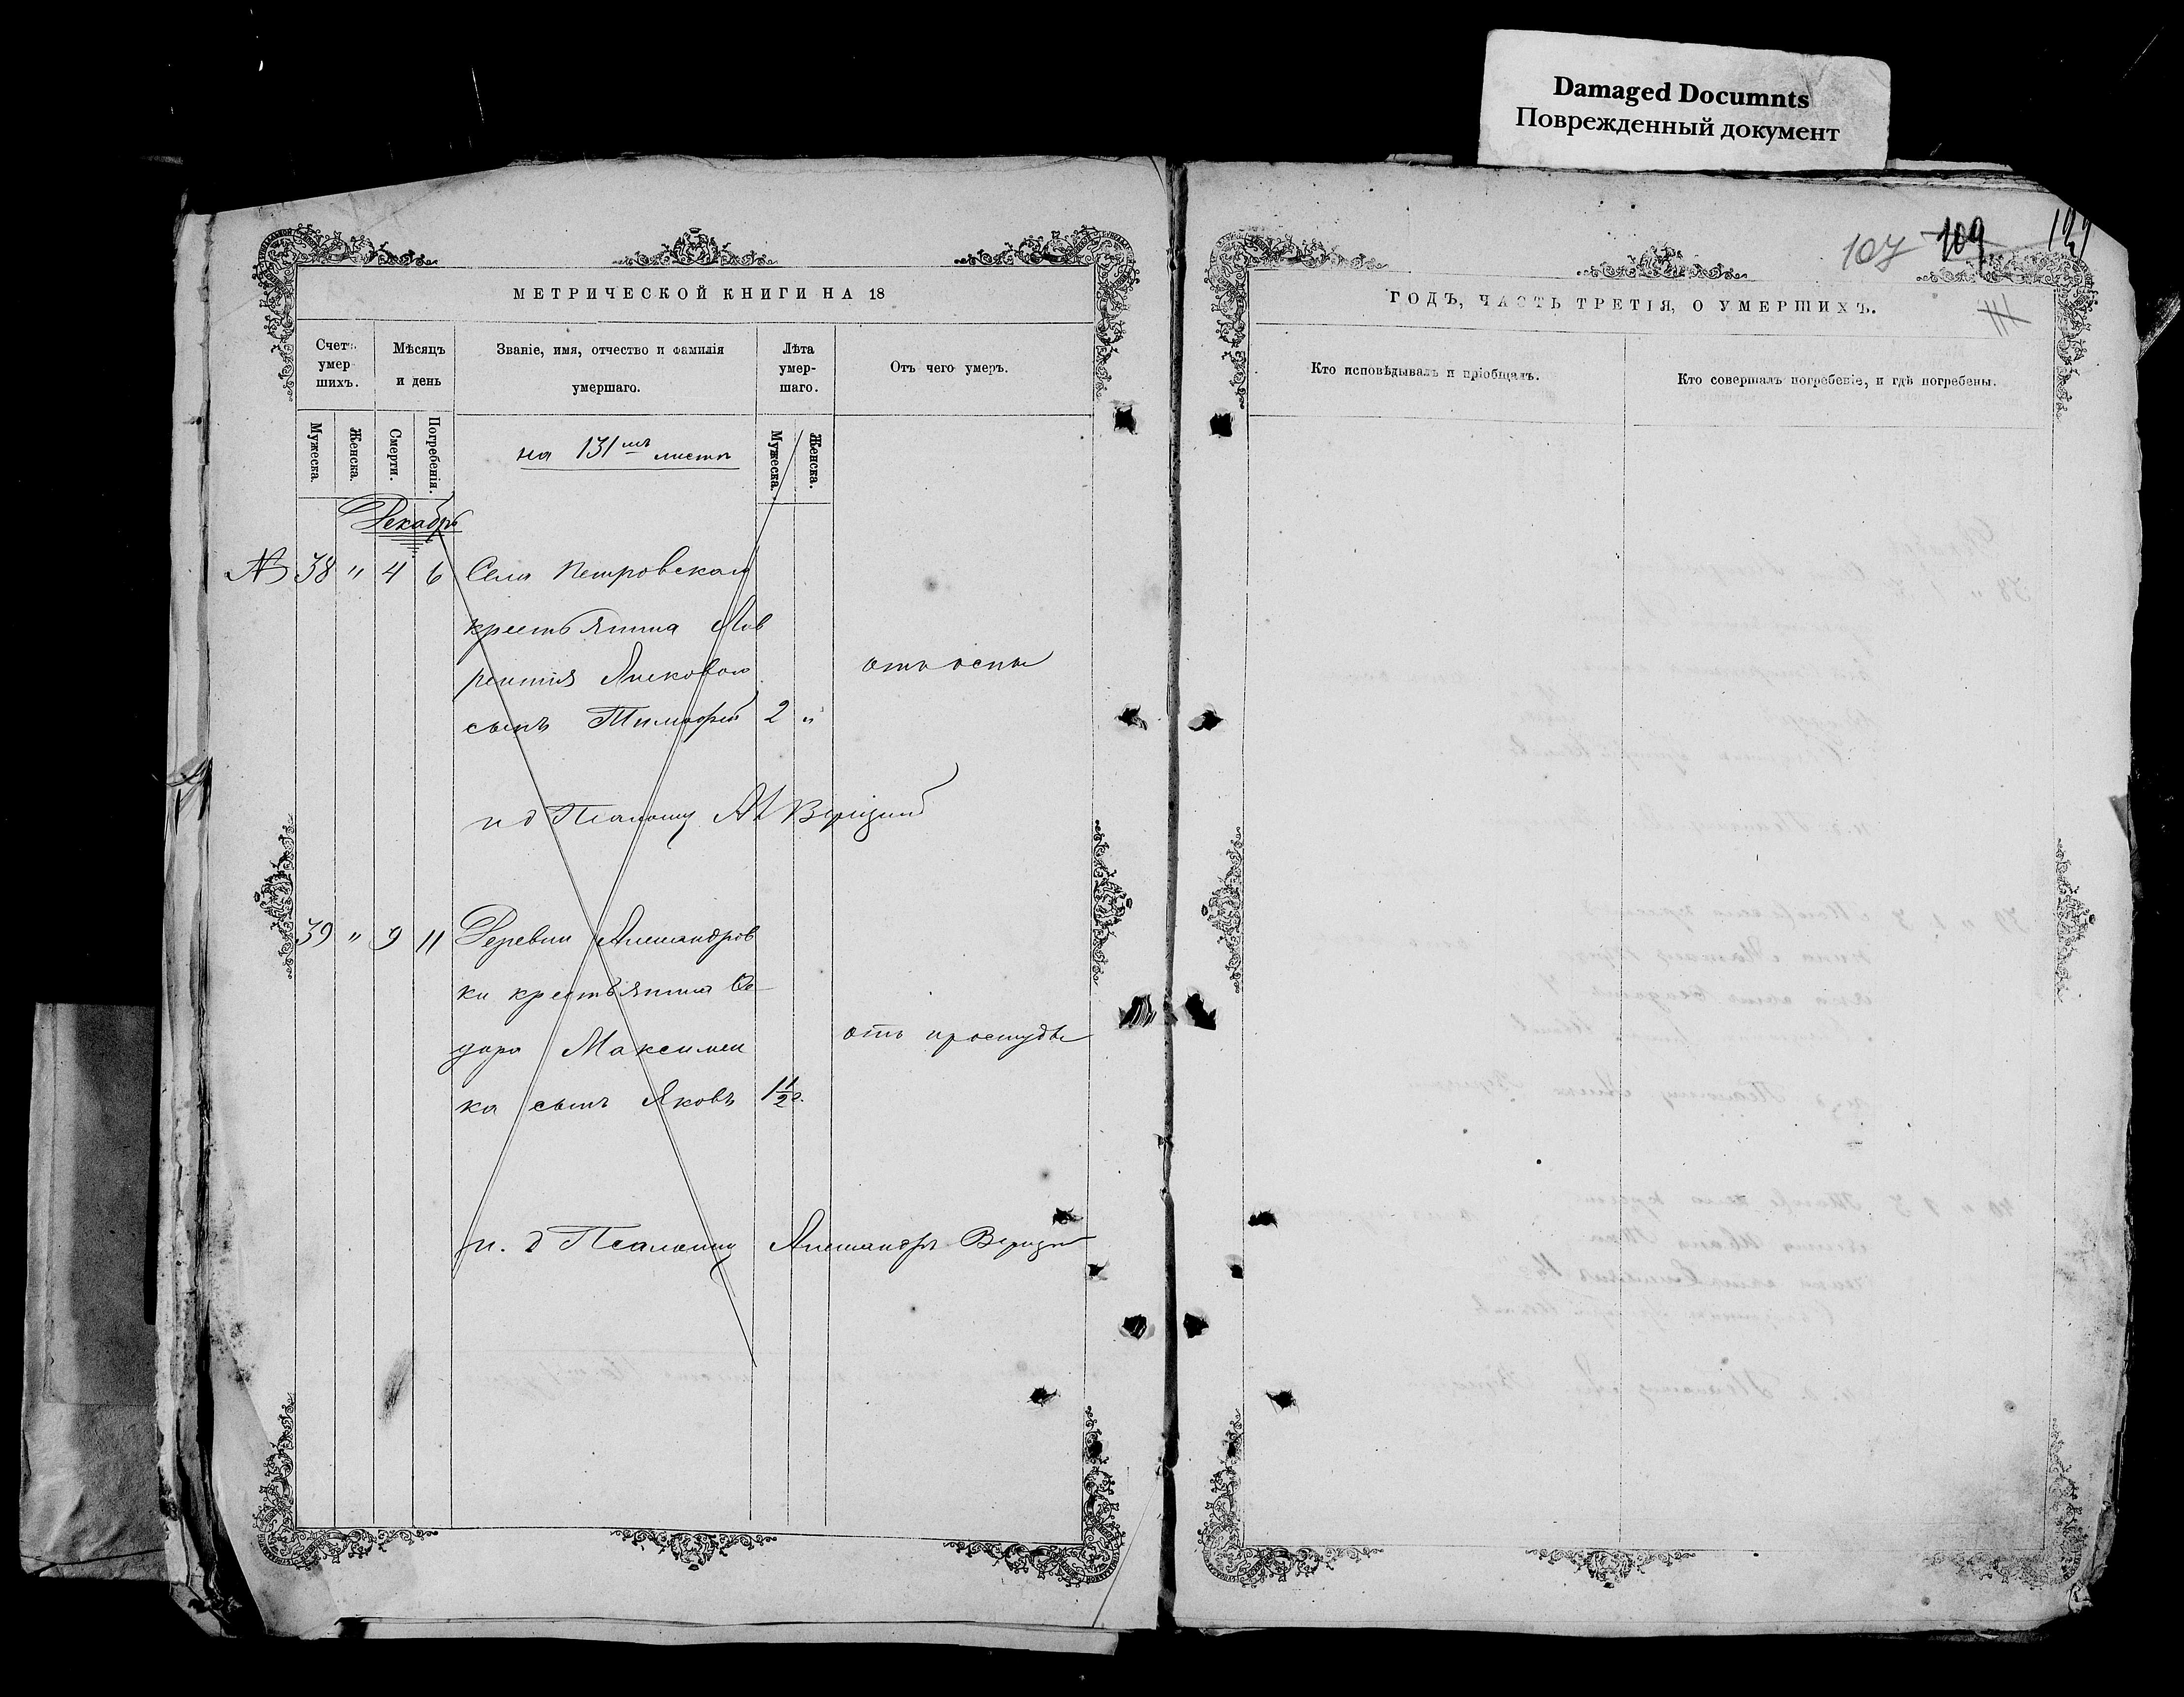 Damaged Documnts
Поврежденный документ
МЕТРИЧЕСКОЙ КНИГИ НА 18
Счетъ умершихъ.
Мѣсяцъ и день
Званіе, имя, отчество и фамилія умершаго.
Лѣта умершаго.
Отъ чего умеръ.
Мужеска.
Женска.
Смерти.
Погребенія.
Мужеска.
Женска.
на 131 листѣ
Декабрь
№ 38 " 4 6 Села Петровскаго
крестьянина Лав
рентія
сынъ Тимофей 2 "
отъ оспы
и д Псаломщ Ал Верицкій
39 " 9 11 Деревни Александров
ки крестьянина Ѳе
дора Максимен
ка сынъ Яковъ 1 1/2 г.
отъ простуды
и. д Псаломщ Александръ Верицкій
107 109
ГОДЪ, ЧАСТЬ ТРЕТІЯ, О УМЕРШИХЪ.
Кто исповѣдывалъ и пріобщалъ.
Кто совершалъ погребеніе, и гдѣ погребены.